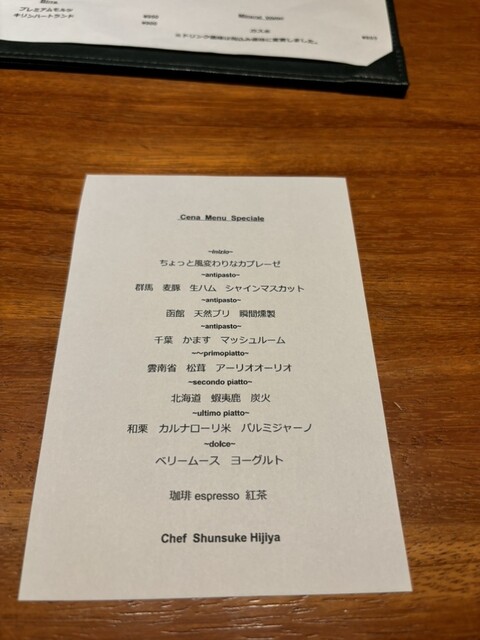 Birra
プレミアムモルツ
キリンハートランド
¥950
¥900
Mineral water
ガス水
※ドリンク価格は税込み価格に変更しました。
Cena Menu Speciale
~inizio~
ちょっと風変わりなカプレーゼ
~antipasto~
群馬 麦豚 生ハム シャインマスカット
~antipasto~
函館 天然ブリ 瞬間燻製
~antipasto~
千葉 かます マッシュルーム
~~primopiatto~
雲南省 松茸 アーリオオーリオ
~secondo piatto~
北海道 蝦夷鹿 炭火
~ultimo piatto~
和栗 カルナローリ米 パルミジャーノ
~dolce~
ベリームース ヨーグルト
珈琲 espresso 紅茶
Chef Shunsuke Hijiya